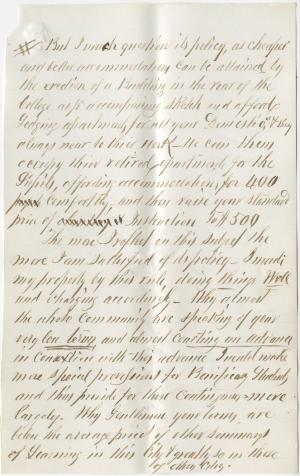 But I much question its policy, as cheaper
and better accommodation can be attained by
the erection of a Building in the rear of the
College as p accompanying sketch and afford
Lodging apartments for all your Domestics, & they
always near to their work
occupy their retired apartments for the
Pupils, affording accommodations for 400
comfortly, and then raise your standard
price of Instruction to $500
The more I reflect on this subject the
more I am satisfied of its policy - I made
my property by this rule, doing things Well
and charging accordingly - Why almost
the whole Community are speaking of your
very low terms and almost Courting an advance
in connexion with this advance I would make
more special provisions for Beneficiary Students
and thus provide for these Contingencies more
largely. Why Gentlemen your terms are
below the average price of other Seminarys
of Learning in this City & greatly so in those
of other Citys